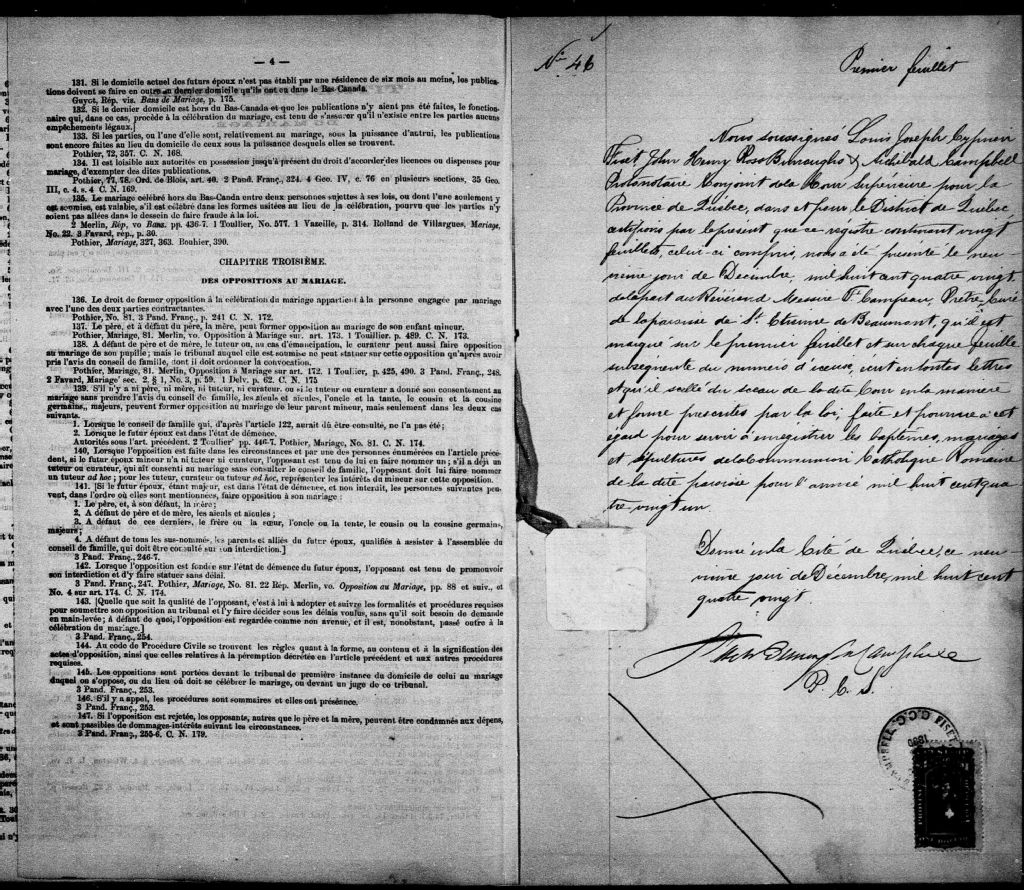 — 4 —
131. Si le domicile actuel des futurs époux n'est pas établi par une résidence de six mois au moins, les publications doivent se faire en outre au dernier domicile qu'ils ont eu dans le Bas-Canada.
Guyot, Rép. vis. Bans de Mariage, p. 175.
132. Si le dernier domicile est hors du Bas-Canada et que les publications n'y aient pas été faites, le fonction-
naire qui, dans ce cas, procède à la célébration du mariage, est tenu de s'assurer qu'il n'existe entre les parties aucuns
empêchements légaux.]
133. Si les parties, ou l'une d'elles sont, relativement au mariage, sous la puissance d'autrui, les publications
sont encore faites au lieu du domicile de ceux sous la puissance desquels elles se trouvent.
Pothier, 72, 357. C. N. 168.
134. Il est loisible aux autorités en possession jusqu'à présent du droit d'accorder des licences ou dispenses pour
mariage, d'exempter des dites publications.
Pothier, 77, 78. Ord. de Blois, art. 40. 2 Pand. Franç., 324. 4 Geo. IV, c. 76 en plusieurs sections, 35 Geo.
III, c. 4. s. 4 C. N. 169.
135. Le mariage célébré hors du Bas-Canada entre deux personnes sujettes à ses lois, ou dont l'une seulement y
est soumise, est valable, s'il est célébré dans les formes usitées au lieu de la célébration, pourvu que les parties n'y
soient pas allées dans le dessein de faire fraude à la loi.
2 Merlin, Rép, vo Bans. pp. 436-7. 1 Toullier, No. 577. 1 Vazeille, p. 314. Rolland de Villargues, Mariage,
No. 22. 3 Favard, rép., p. 30.
Pothier, Mariage, 327, 363. Bouhier, 390.
CHAPITRE TROISIÈME.
DES OPPOSITIONS AU MARIAGE.
136. Le droit de former opposition à la célébration du mariage appartient à la personne engagée par mariage
avec l'une des deux parties contractantes.
Pothier, No. 81. 3 Pand. Franç., p. 241 C. N. 172.
137. Le père, et à défaut du père, la mère, peut former opposition au mariage de son enfant mineur.
Pothier, Mariage, 81. Merlin, vo. Opposition à Mariage sur. art. 173. 1 Toullier. p. 489. C. N. 173.
138. A défaut de père et de mère, le tuteur ou, au cas d'émancipation, le curateur peut aussi faire opposition
au mariage de son pupille; mais le tribunal auquel elle est soumise ne peut statuer sur cette opposition qu'après avoir
pris l'avis du conseil de famille, dont il doit ordonner la convocation.
Pothier, Mariage, 81. Merlin, Opposition à Mariage sur art. 172. 1 Toullier, p. 425, 490. 3 Pand. Franç., 248.
2 Favard, Mariage' sec. 2. § 1, No. 3, p. 59. 1 Delv. p. 62. C. N. 175
139. S'il n'y a ni père, ni mère, ni tuteur, ni curateur, ou si le tuteur ou curateur a donné son consentement au
mariage sans prendre l'avis du conseil de famille, les aïeuls et aïeules, l'oncle et la tante, le cousin et la cousine
germains, majeurs, peuvent former opposition au mariage de leur parent mineur, mais seulement dans les deux cas
suivants.
1. Lorsque le conseil de famille qui, d'après l'article 122, aurait dû être consulté, ne l'a pas été;
2. Lorsque le futur époux est dans l'état de démence.
Autorités sous l'art. précédent. 2 Toullier' pp. 446-7. Pothier, Mariage, No. 81. C. N. 174.
140, Lorsque l'opposition est faite dans les circonstances et par une des personnes énumérées en l'article précé-
dent, si le futur époux mineur n'a ni tuteur ni curateur, l'opposant est tenu de lui en faire nommer un; s'il a déjà un
tuteur ou curateur, qui ait consenti au mariage sans consulter le conseil de famille, l'opposant doit lui faire nommer
un tuteur ad hoc; pour les tuteur, curateur ou tuteur ad hoc, représenter les intérêts du mineur sur cette opposition.
141. [Si le futur époux, étant majeur, est dans l'état de démence, et non interdit, les personnes suivantes peu-
vent, dans l'ordre où elles sont mentionnées, faire opposition à son mariage:
1. Le père, et, à son défaut, la mère;
2. A défaut de père et de mère, les aïeuls et aïeules;
3. A défaut de ces derniers, le frère ou la sœur, l'oncle ou la tente, le cousin ou la cousine germains,
majeurs;
4. A défaut de tous les sus-nommés, les parents et alliés du futur époux, qualifiés à assister à l'assemblée du
conseil de famille, qui doit être consulté sur son interdiction.]
3 Pand. Franç., 246-7.
142. Lorsque l'opposition est fondée sur l'état de démence du futur époux, l'opposant est tenu de promouvoir
son interdiction et d'y faire statuer sans délai.
3 Pand. Franç., 247. Pothier, Mariage, No. 81. 22 Rép. Merlin, vo. Opposition au Mariage, pp. 88 et suiv., et
No. 4 sur art. 174. C. N. 174.
143. [Quelle que soit la qualité de l'opposant, c'est à lui à adopter et suivre les formalités et procédures requises
pour soumettre son opposition au tribunal et l'y faire décider sous les délais voulus, sans qu'il soit besoin de demande
en main-levée; à défaut de quoi, l'opposition est regardée comme non avenue, et il est, nonobstant, passé outre à la
célébration du mariage.]
3 Pand. Franç., 254.
144. Au code de Procédure Civile se trouvent les règles quant à la forme, au contenu et à la signification des
actes d'opposition, ainsi que celles relatives à la péremption décrétée en l'article précédent et aux autres procédures
requises.
145. Les oppositions sont portées devant le tribunal de première instance du domicile de celui au mariage
duquel on s'oppose, ou du lieu où doit se célébrer le mariage, ou devant un juge de ce tribunal.
3 Pand. Franç., 253.
146. S'il y a appel, les procédures sont sommaires et elles ont préséance.
3 Pand. Franç., 253.
147. Si l'opposition est rejetée, les opposants, autres que le père et la mère, peuvent être condamnés aux dépens,
et sont passibles de dommages-intérêts suivant les circonstances.
3 Pand. Franç., 255-6. C. N. 179.
No. 46
Premier feuillet
Nous soussignés Louis Joseph Cyprien
Fiset John Henry Ross Burroughs & Archibald Campbell
Protonotaire Conjoint de la Cour Supérieure pour la
Province de Québec, dans et pour le District de Québec
certifions par le présent que ce registre contenant vingt
feuillets, celui-ci compris, nous a été présenté le neu-
vième jour de Décembre, mil huit cent quatre vingt
de la part du Révérend Messire Fs. Campeau, Prêtre-Curé
de la paroisse de St. Etienne de Beaumont, qu'il est
marqué sur le premier feuillet et sur chaque feuille
subséquente du numéro d'iceux, écrit en toutes lettres
et qu'il scellé du sceau de la dite Cour en la manière
et forme prescrites par la loi; faite et pourvue à cet
égard pour servir à enregistrer les baptêmes, mariages
et sépultures de la Communion Catholique Romaine
de la dite paroisse pour l'année mil huit cent qua
tre vingt un
Donné en la Cité de Québec, ce neu-
vième jour de Décembre, mil huit cent
quatre vingt
Campbell
P. C. S.